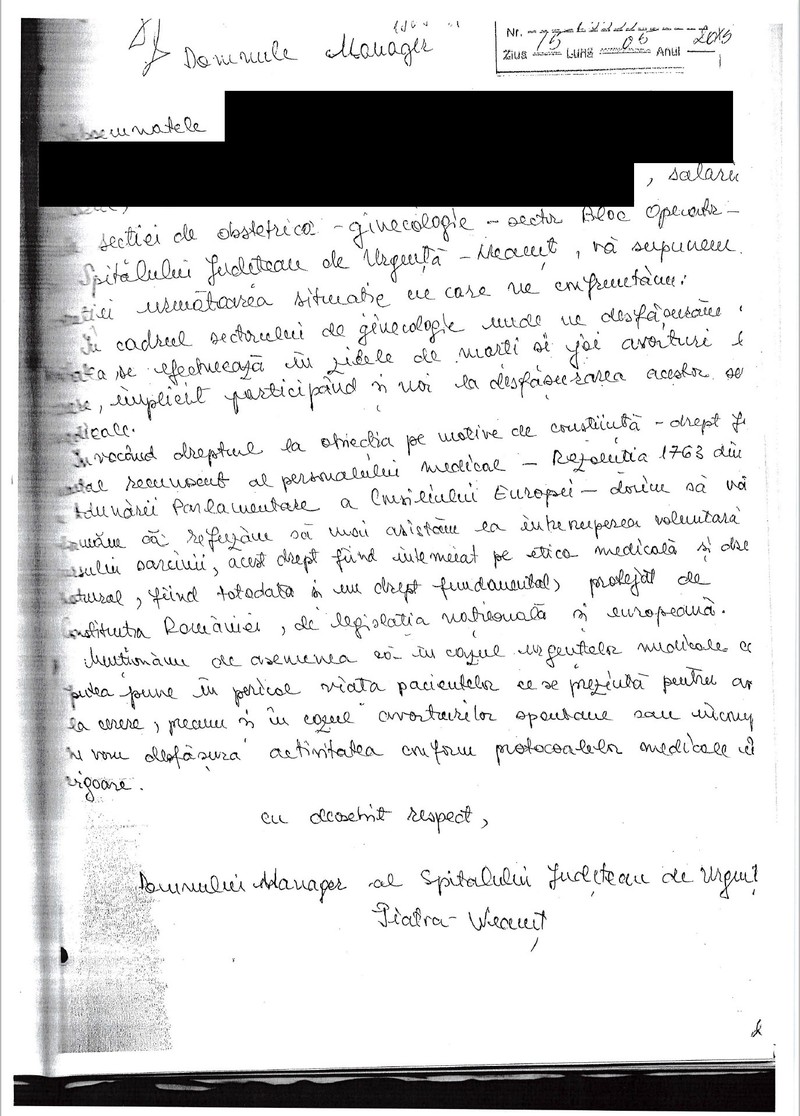 Domnule Manager
Nr.
Ziua 15 Luna 05 Anul 2015
Subsemnatele
, salari
secției de obstetrică - ginecologie - sector Bloc Operator -
Spitalului Județean de Urgență - Neamț, vă supunem
următoarea situație cu care ne confruntăm:
În cadrul sectorului de ginecologie unde ne desfășurăm
se efectuează în zilele de marți și joi avorturi l
, implicit participând și noi la desfășurarea acestor se
Invocând dreptul la obiecția pe motive de conștiință - drept f
recunoscut al personalului medical - Rezoluția 1763 din
Adunării Parlamentare a Consiliului Europei - dorim să vă
că refuzăm să mai asistăm la întreruperea voluntară
sarcinii, acest drept fiind întemeiat pe etica medicală și dre
, fiind totodată și un drept fundamental, protejat de
Constituția României, de legislația națională și europeană.
Menționăm de asemenea că în cazul urgențelor medicale c
putea pune în pericol viața pacientelor ce se prezintă pentru av
la cerere, precum și în cazul avorturilor spontane sau
vom desfășura activitatea conform protocoalelor medicale î
vigoare.
cu deosebit respect,
Domnului Manager al Spitalului Județean de Urgenț
Piatra-Neamț